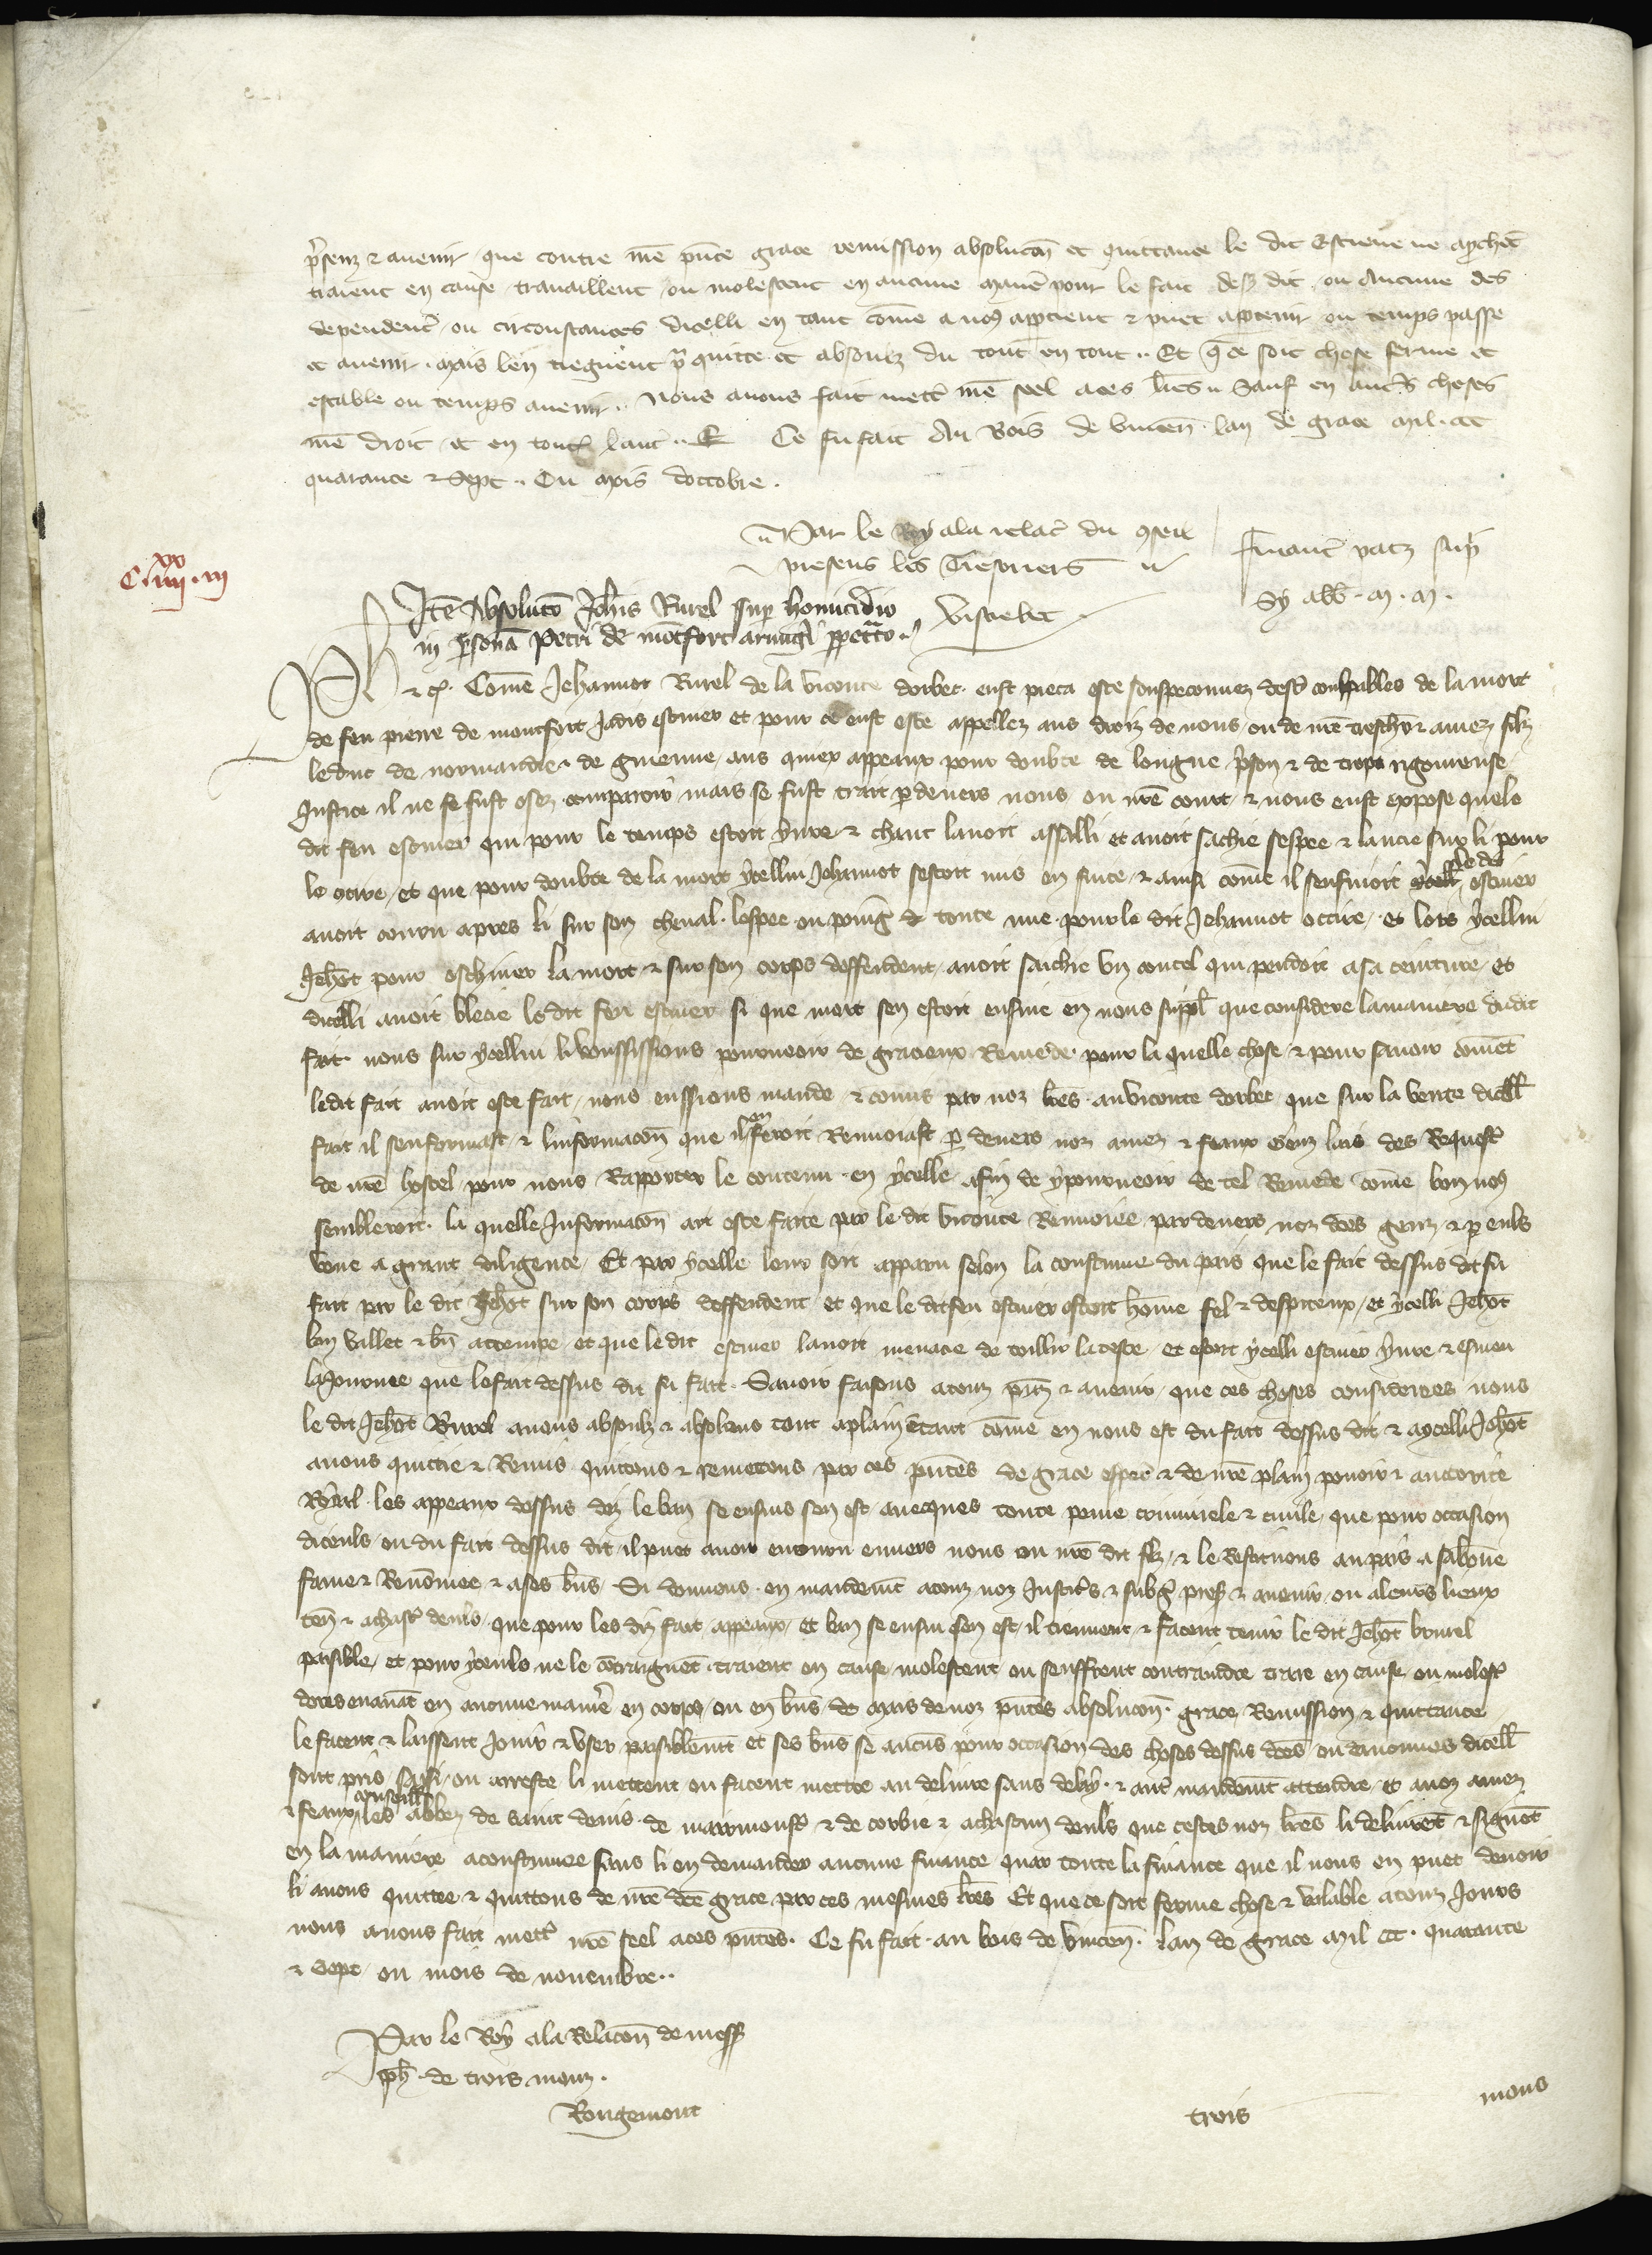 p̃senz & auenir que contre nr̃e pñte grace remission absoluco͂n et quittance le dit Estieue ne apechẽt
traient en cause trauaillent ou molestent en aucune maniẽ pour le fait dess9 dit ou Aucune des
dependent̾ ou circonstances dicelli en tant com̃e a no9 aptient & puet aptenir ou temps passe
et auenir. mais len tiegnent p̃ quitte et absoulz du tout en tout.. Et q̃ ce soit chose ferme et
estable ou temps auenir.. Nous auons fait mettr̾ nr̃e seel a ces lr̃es.. Sauf en autr̃s choses
nr̃e droit et en toutes lautr̾.. Ce fu fait Au Bois de Vincen̄. lan de grace Mil. CCC
quarante & Sept.. Ou mois doctobre.
Par le Roy a la relac̃ du 9seil
presens les Tresoriers
Financ̃ pacz sup̃
Sy abb̃. M. M.
C. iiii xx. iii
Itẽ Absoluto Joh̃is Rurel sup̃ homicidio
in p̃sonã Petri de mõtfort armig̃i ppetrato..
Ph̃
& c̃. Com̃e Jehannot Rurel de la viconte dorbec. eust pieca este souspeconnez destr̾ coulpables de la mort
de feu pierre de montfort jadis escuier et pour ce eust este appellez aus droiz de nous ou de nr̃e treschr̃ & amez filz
le duc de normandie & de guienne aus quiex appeaux pour doubte de longue p̃son & de trop rigoureuse
justice il ne se fust osez comparoir mais se fust trait p deuers nous ou nr̃e court & nous eust expose que le
dit feu escuier qui pour le temps estoit yure & chaut lauoit assalli et auoit sachie sespee & lancie sur li pour
le occire et que pour doubte de la mort ycellui Jehannot sestoit mis en fuite & ainsi com̃e il senfuioit le dit escuier
auoit couru apres li sur son cheual. lespee ou poing & toute nue pour le dit Jehannot occire et lors ycellui
Jeh̃ot pour eschiuer la mort & sur son corps deffendent auoit sachie vn coutel qui pendoit a sa ceinture et
dicelli auoit blecie le dit feu escuier si que mort sen estoit ensuie en nous suppl̃ que considere la maniere dudit
fait. nous sur ycellui li voussissions pourueoir de gracieux Remede. pour la quelle chose & pour sauoir com̃ẽt
ledit fait auoit este fait nous eussions mande & com̃is par noz lr̃es. au viconte dorbec que sur la verite dicell̃
fait il senformast & linformaco͂n que il en feroit Renuoiast p deuers noz amez & feaux Genz lais des Requestr̾
de nr̃e hostel pour nous Rapporter le contenu en ycelle afin de y pourueoir de tel Remede com̃e bon no9
sembleroit. la quelle Informaco͂n ait este faite par le dit viconte Renuoiee par deuers noz dc̃es genz & p euls
veue a grant diligence. Et par ycelle leur soit apparu selon la coustume du pais que le fait dessus dit fu
fait par le dit Jeh̃ot sur son corps deffendent et que le dit feu escuier estoit hom̃e fel & despiteux et ycelli Jeh̃ot
bon vallet & bñ attempe et que le dit escuier lauoit menacie de tollir la teste et estoit ycelli escuier yure & esmeu
la journee que le fait dessus dit fu fait. Sauoir faisons a touz p̃nz & auenir que ces choses considerees nous
le dit Jeh̃ot Rurel auons absoulz & absolons tout a plain ẽtant com̃e en nous est du fait dessus dit & a ycelli Jeh̃ot
auons quittie & Remis quittons & remettons par ces p̃ntes de grace esp̃ci & de nr̃e plain pouoir & auctorite
Royal les appeaux dessus diz le ban se ensuis sen est auecques toute peine criminele & ciuile que pour occasion
diceuls ou du fait dessus dit il puet auoir encouru enuers nous ou nr̃e dit filz & le Restituons au pais a sa bõne
fame & Renom̃ee & a ses bñs. Si donnons en mandemẽt a touz noz justicr̃s & subg̃ p̃sẽs & auenir ou a leurs lieux
ten̄ & a chastr̾ deuls que pour les diz fait appeaux et ban se ensui sen est il tiennent & facent tenir le dit Jeh̃ot burel
paisible et pour yceuls ne le cõtraignẽt traient en cause molestent ou seuffrent contraindre traire en cause ou molestr̾
doresenauãt en aucune maniẽ en corps ou en bñs & mais de noz p̃ntes absoluco͂n. grace Remission & quittance
le facent & laissent jouir & vser paisiblemẽt et ses bñs se aucũs pour occasion des choses dessus dc̃es ou daucunes dicell̃
sont pris saisi ou arreste li mettent ou facent mettre au deliure sans delay. & aut̾ mandemẽt attendre et a noz amez
& feaux conseill̃ les abbez de saint denis de mairmoustr̾ & de corbie & a chascun deuls que cestes noz lr̃es li deliurẽt & signẽt
en la maniere acoustumee sans li en demander aucune finance quar toute la finance que il nous en puet deuoir
li auons quittee & quittons de nr̃e dc̃e grace par ces mesmes lr̃es Et que ce soit ferme chose & valable a touz jours
nous auons fait mettr̾ nr̃e seel a ces p̃ntes. Ce fu fait. au bois de vincen̄. lan de grace mil CCC. quarante
& sept ou mois de nouembre..
Par le Roy a la Relaco͂n de mess̃
ph̃. de trois monz.
Rougemont
trois mons